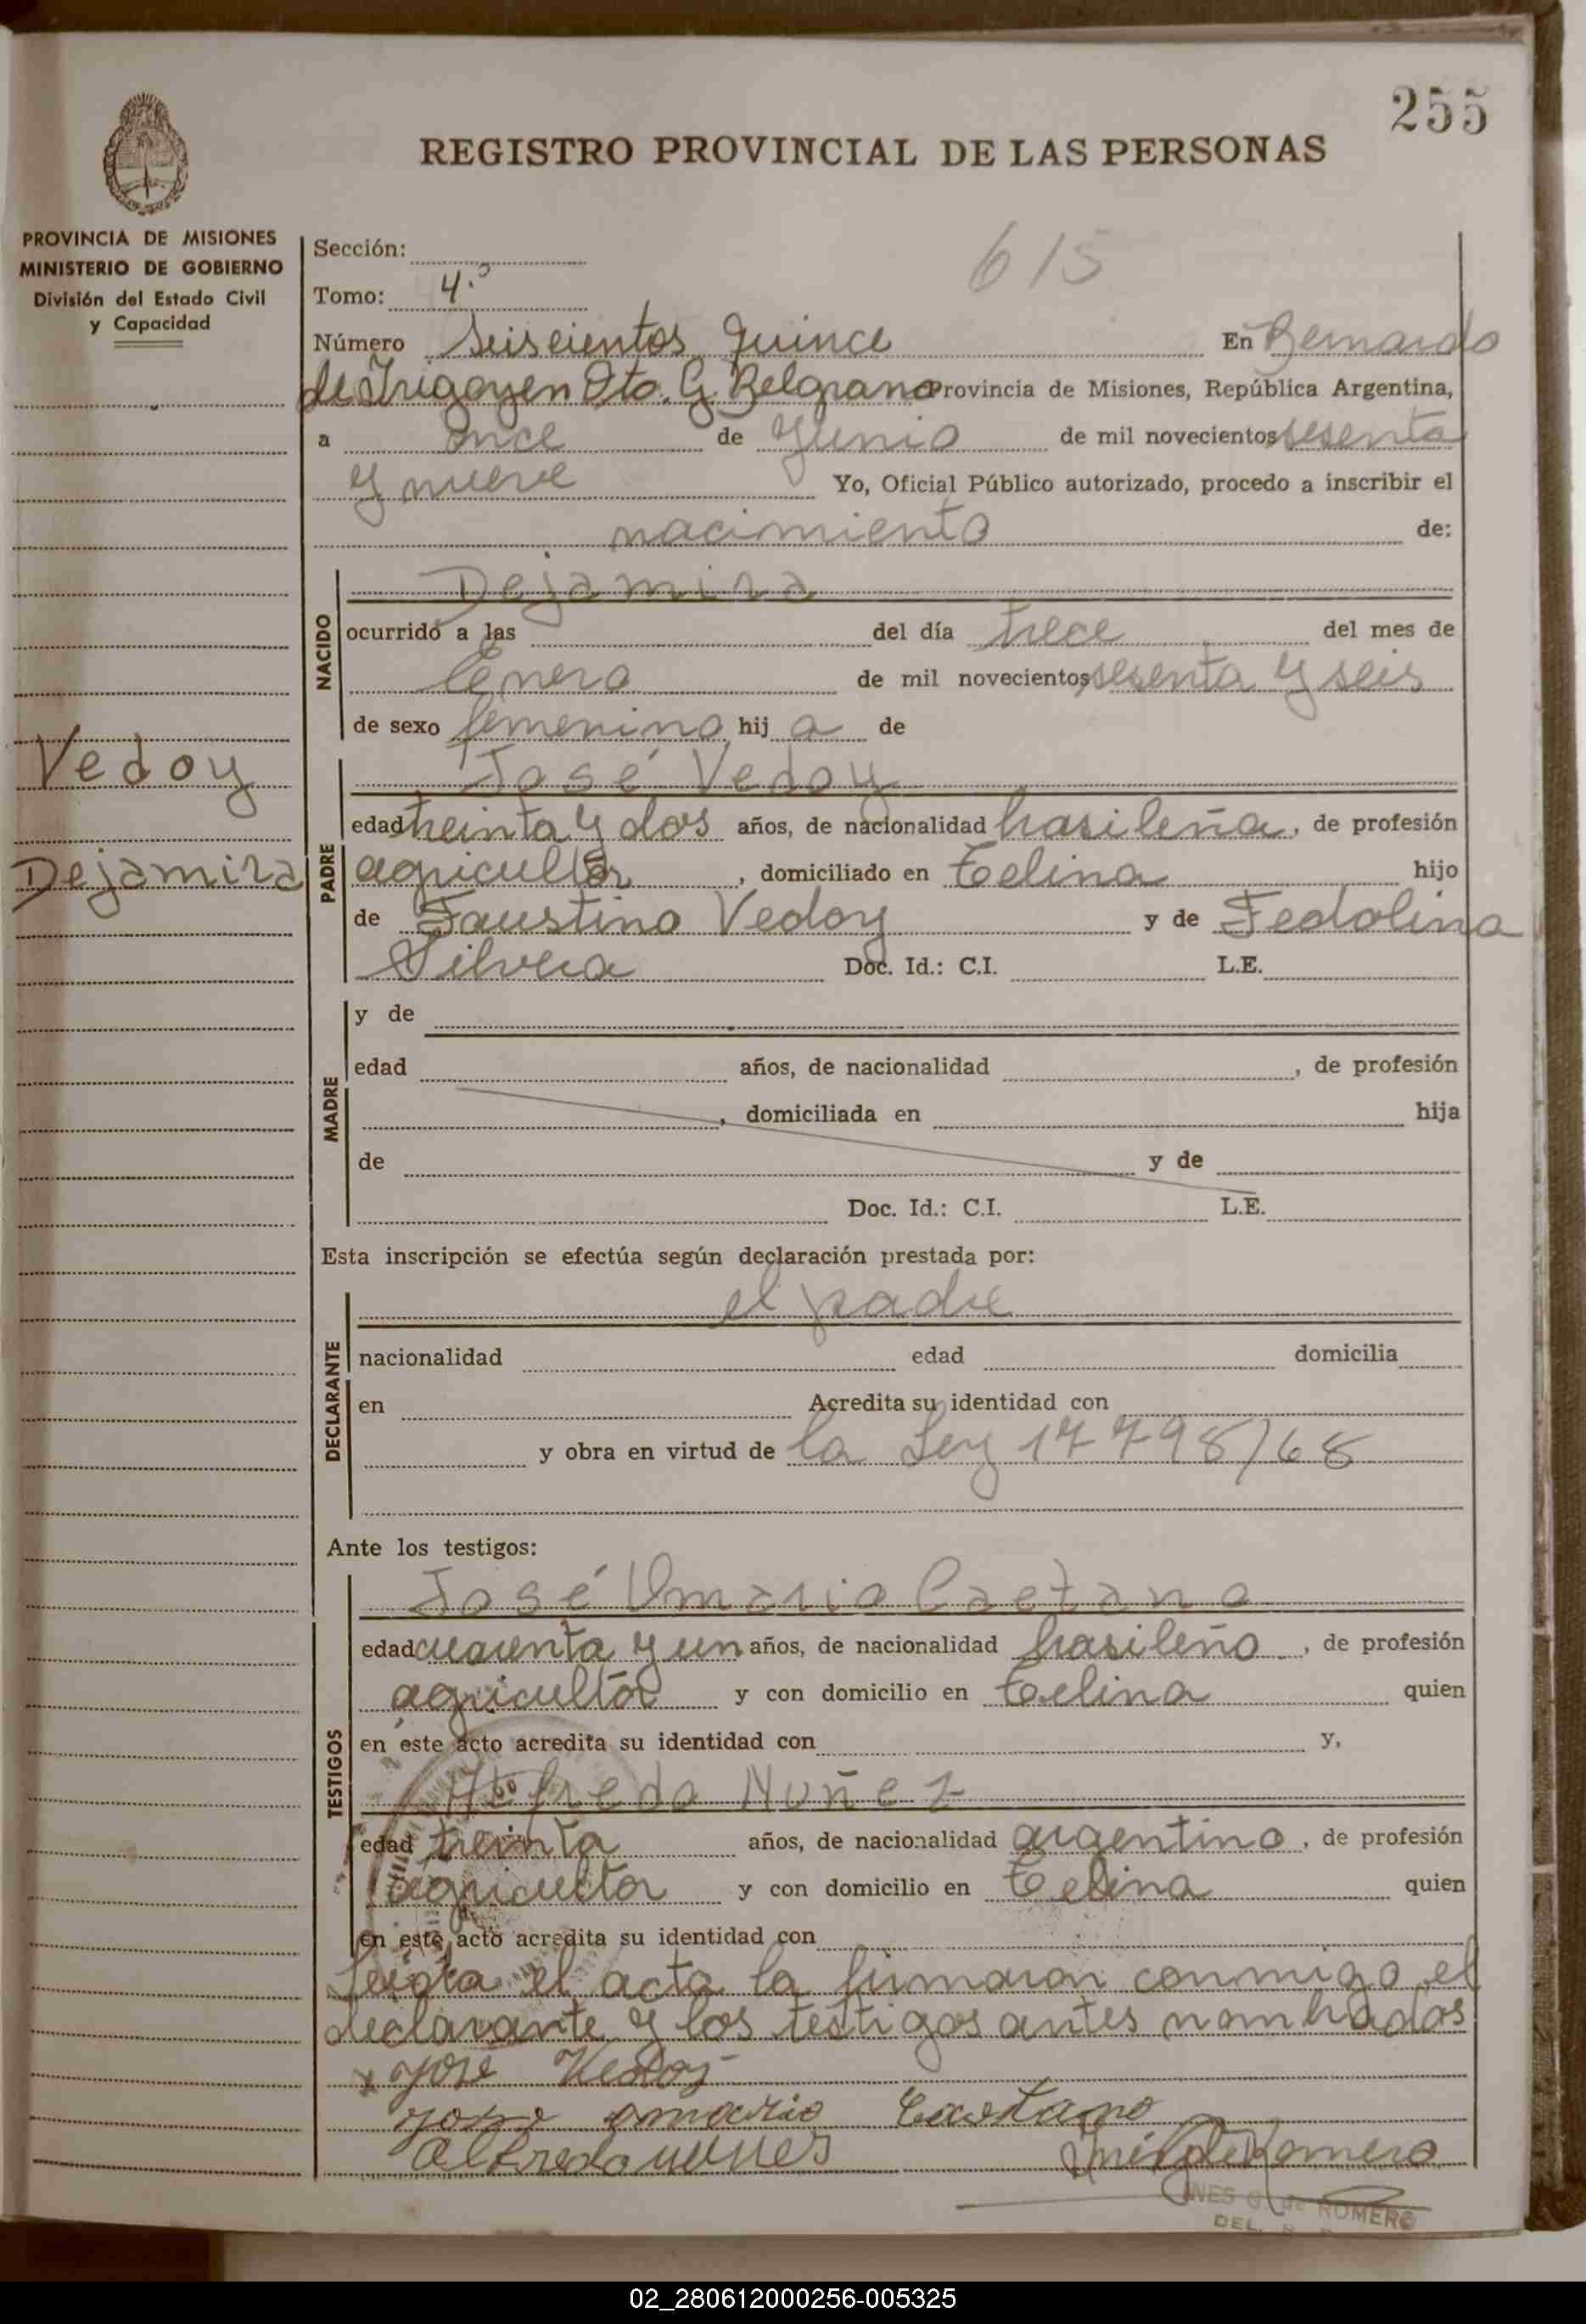 255
REGISTRO PROVINCIAL DE LAS PERSONAS
PROVINCIA DE MISIONES
MINISTERIO DE GOBIERNO
División del Estado Civil
y Capacidad
Sección:
615
Tomo: 4.º
Número Seiscientos Quince En Bernardo
de Irigoyen Dto. G. Belgrano Provincia de Misiones, República Argentina,
a once de Junio de mil novecientos sesenta
y nueve Yo, Oficial Público autorizado, procedo a inscribir el
nacimiento de:
NACIDO
Dejamira
ocurrido a las del día trece del mes de
Enero de mil novecientos sesenta y seis
de sexo femenino hij a de
Vedoy
Dejamira
PADRE
José Vedoy
edad treinta y dos años, de nacionalidad brasileña, de profesión
agricultor, domiciliado en Celina hijo
de Faustino Vedoy y de Fedolina
Silveia Doc. Id.: C.I. L.E.
MADRE
y de
edad años, de nacionalidad , de profesión
, domiciliada en hija
de y de
Doc. Id.: C.I. L.E.
Esta inscripción se efectúa según declaración prestada por:
DECLARANTE
el padre
nacionalidad edad domicilia
en Acredita su identidad con
y obra en virtud de la Ley 17798/68
Ante los testigos:
TESTIGOS
José Omario Caetano
edad cuarenta y un años, de nacionalidad brasileño, de profesión
agricultor y con domicilio en Celina quien
en este acto acredita su identidad con y,
Alfredo Nuñez
edad treinta años, de nacionalidad argentino, de profesión
agricultor y con domicilio en Celina quien
en este acto acredita su identidad con
Leida el acta la firmaron conmigo el
declarante y los testigos antes nombrados
x José Vedoy
José omario Caetano
Alfredo nunes Inés G de Romero
INES G. de ROMERO
DEL.
02_280612000256-005325